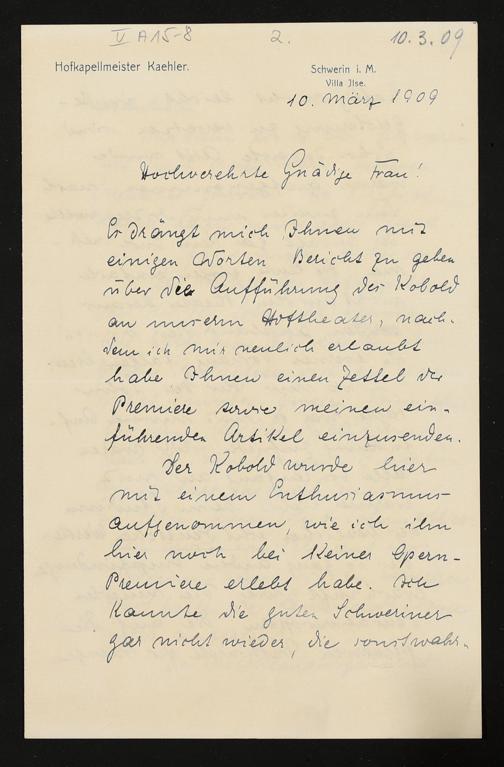 V A 15-8 2. 10.3.09
Hofkapellmeister Kaehler.
Schwerin i. M.
Villa Ilse.
10. März 1909
Hochverehrte Gnädige Frau!
Es drängt mich Ihnen mit
einigen Worten Bericht zu geben
über die Aufführung des Kobold
an unserm Hoftheater, nach-
dem ich mir neulich erlaubt
habe Ihnen einen Zettel der
Premiere sowie meinen ein-
führenden Artikel einzusenden.
Der Kobold wurde hier
mit einem Enthusiasmus
aufgenommen, wie ich ihn
hier noch bei keiner Opern-
Premiere erlebt habe. Ich
kannte die guten Schweriner
gar nicht wieder, die sonst wahr-